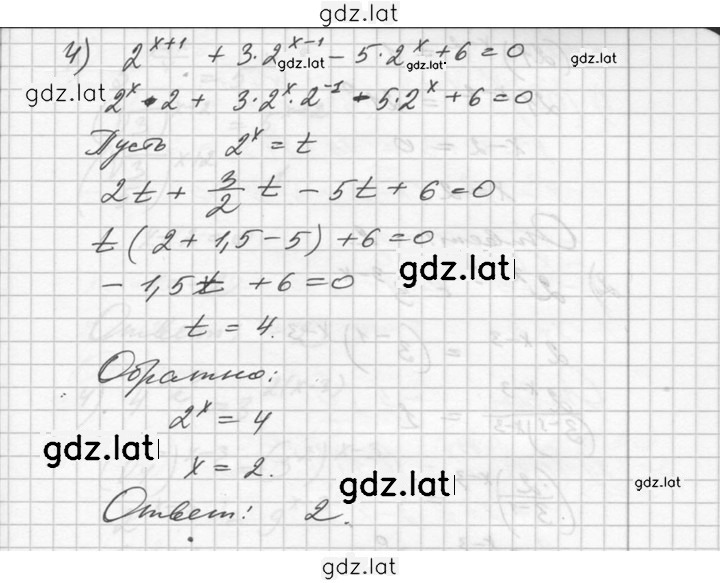 gdz.lat
4) 2^{x+1} + 3·2^{x-1} - 5·2^x + 6 = 0
gdz.lat gdz.lat gdz.lat
gdz.lat
2^x · 2 + 3·2^x·2^{-1} - 5·2^x + 6 = 0
Пусть 2^x = t
2t + 3/2 t - 5t + 6 = 0
t (2 + 1,5 - 5) + 6 = 0
gdz.lat
- 1,5t + 6 = 0
t = 4.
Обратно:
2^x = 4
gdz.lat
x = 2.
gdz.lat gdz.lat
Ответ: 2.
gdz.lat